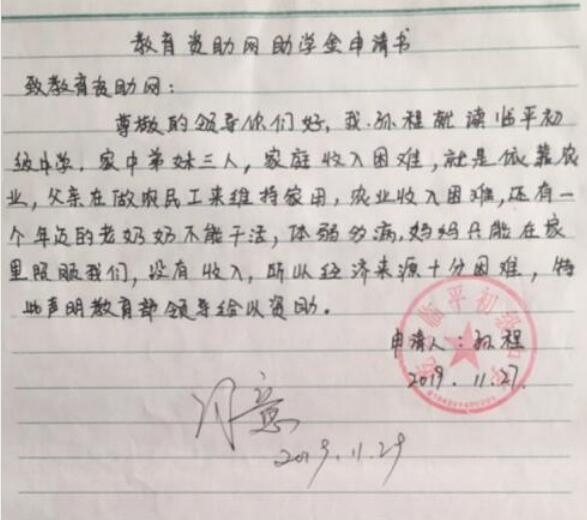 教育资助网助学金申请书
致教育资助网：
尊敬的领导你们好，我孙程就读临平初
级中学．家中弟妹三人，家庭收入困难，就是依靠农
业，父亲在做农民工来维持家用，农业收入困难，还有一
个年迈的老奶奶不能干活，体弱多病，妈妈只能在家
里照顾我们，没有收入，所以经济来源十分困难，特
此声明教育部领导给以资助。
申请人：孙程
2019．11.27.
临平初级中学
同意
2019.11.29